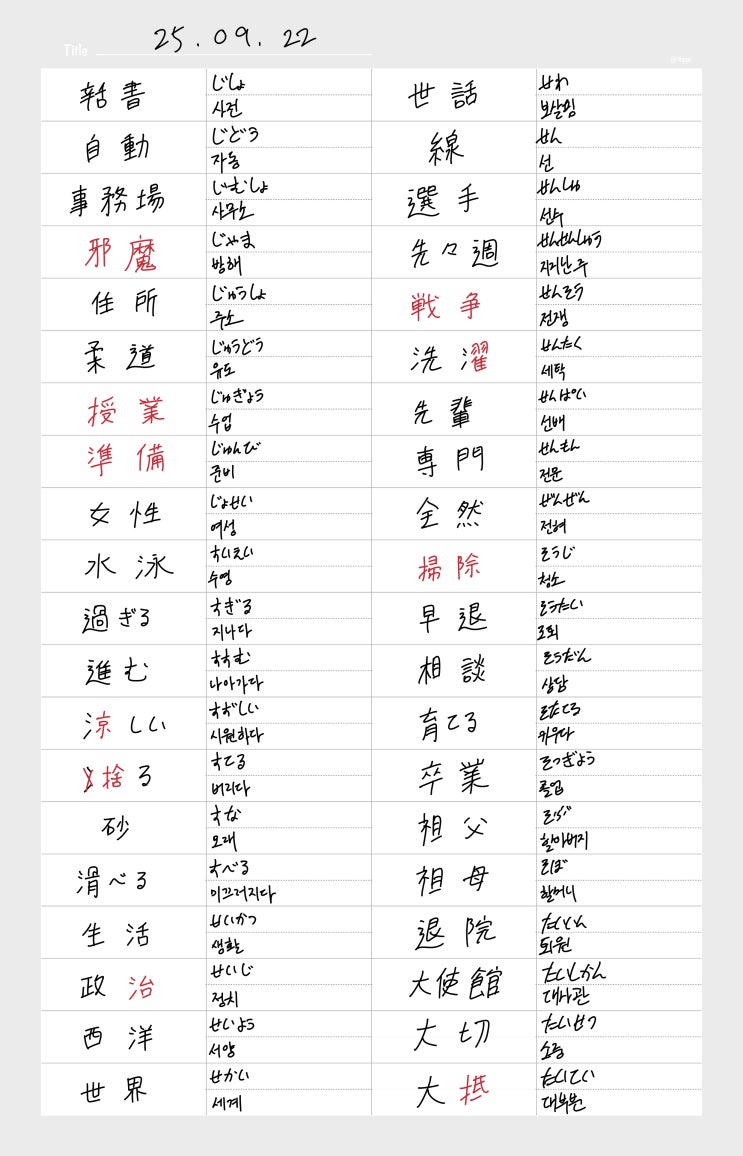 Title 25.09.22
辞書
じしょ
사전
自動
じどう
자동
事務場
じむしょ
사무소
邪魔
じゃま
방해
住所
じゅうしょ
주소
柔道
じゅうどう
유도
授業
じゅぎょう
수업
準備
じゅんび
준비
女性
じょせい
여성
水泳
すいえい
수영
過ぎる
すぎる
지나다
進む
すすむ
나아가다
涼しい
すずしい
시원하다
捨る
すてる
버리다
砂
すな
모래
滑べる
すべる
미끄러지다
生活
せいかつ
생활
政治
せいじ
정치
西洋
せいよう
서양
世界
せかい
세계
世話
せわ
보살핌
線
せん
선
選手
せんしゅ
선수
先々週
せんせんしゅう
지지난 주
戦争
せんそう
전쟁
洗濯
せんたく
세탁
先輩
せんぱい
선배
専門
せんもん
전문
全然
ぜんぜん
전혀
掃除
そうじ
청소
早退
そうたい
조퇴
相談
そうだん
상담
育てる
そだてる
키우다
卒業
そつぎょう
졸업
祖父
そふ
할아버지
祖母
そぼ
할머니
退院
たいいん
퇴원
大使館
たいしかん
대사관
大切
たいせつ
소중
大抵
たいてい
대부분